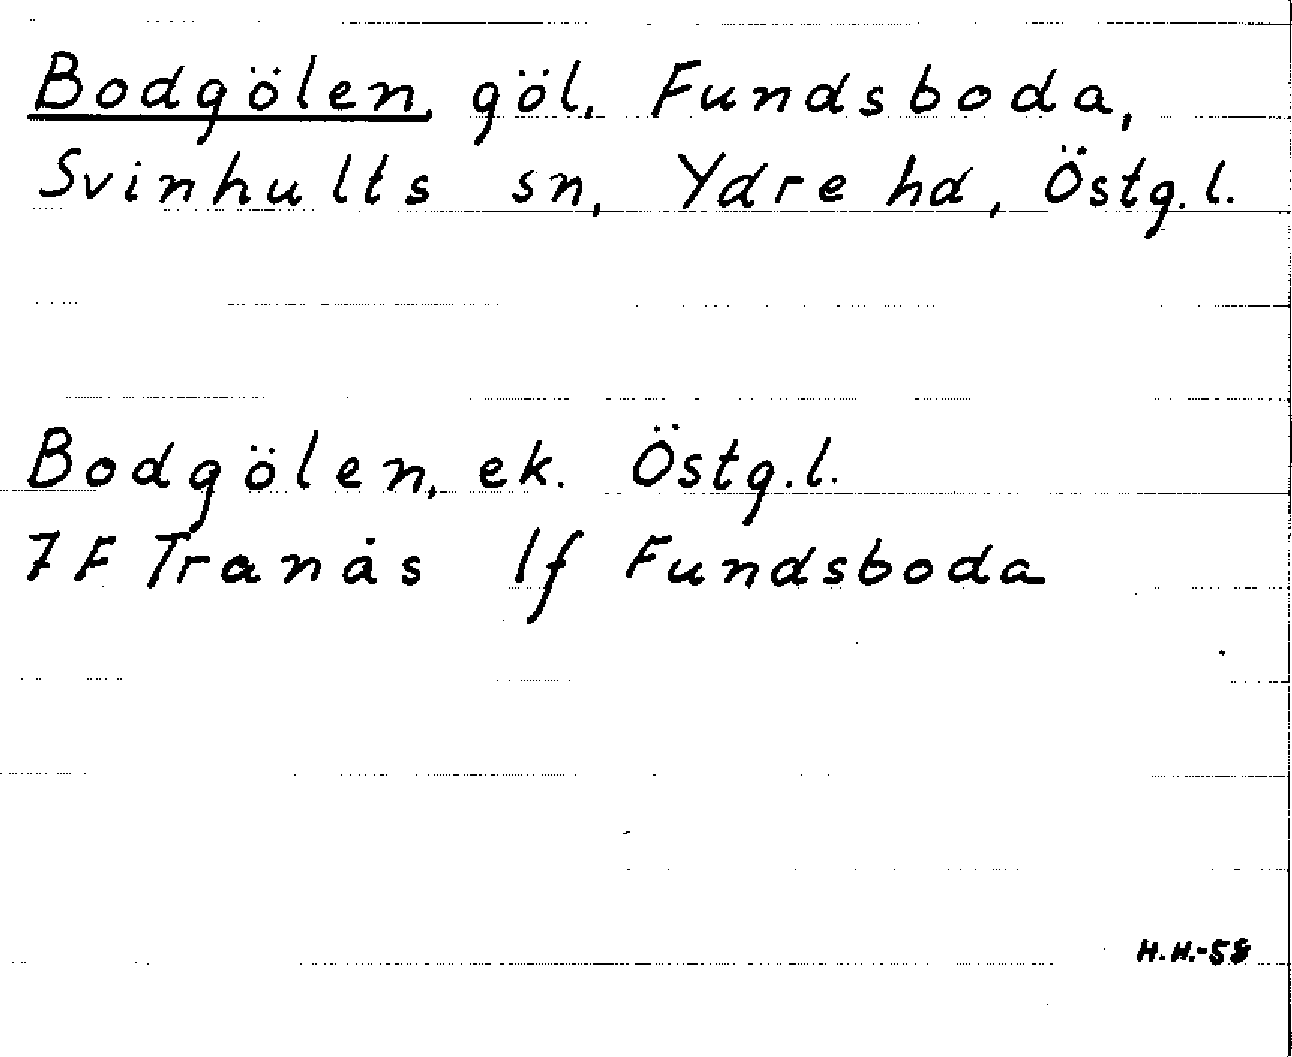 Bodgölen, göl, Fundsboda,
Svinhults sn, Ydre hd, Östg.l.
Bodgölen, ek. Östg.l.
7F Tranås 1f Fundsboda
H.H.-58